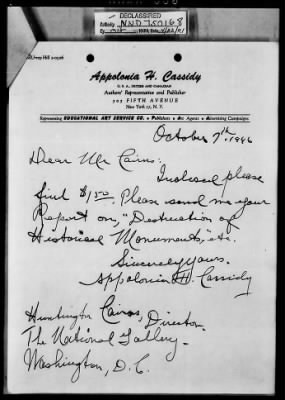 DECLASSIFIED
Authority NND 750168
Appolonia H. Cassidy
Authors' Representative and Publisher
FIFTH AVENUE
New York 17, N.Y.
Representing EDUCATIONAL ART SERVICE CO. • Publishers • Art Agents • Advertising Campaigns
October 7th, 1946
Dear Mr Cairns:
Inclosed please
find $1.50. Please send me your
Report on, "Destruction of
Historical Monuments," etc.
Sincerely Yours,
Appolonia H. Cassidy
Huntington Cairns, Director.
The National Gallery.
Washington, D.C.